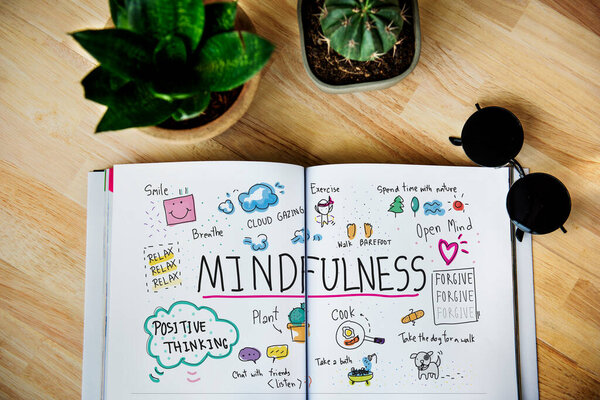 Smile
Breathe
CLOUD GAZING
Exercise
Spend time with nature
Walk BAREFOOT
Open Mind
RELAX
RELAX
RELAX
MINDFULNESS
FORGIVE
FORGIVE
FORGIVE
POSITIVE
THINKING
Plant
Chat with friends
(listen)
Cook
Take a bath
Take the dog for a walk